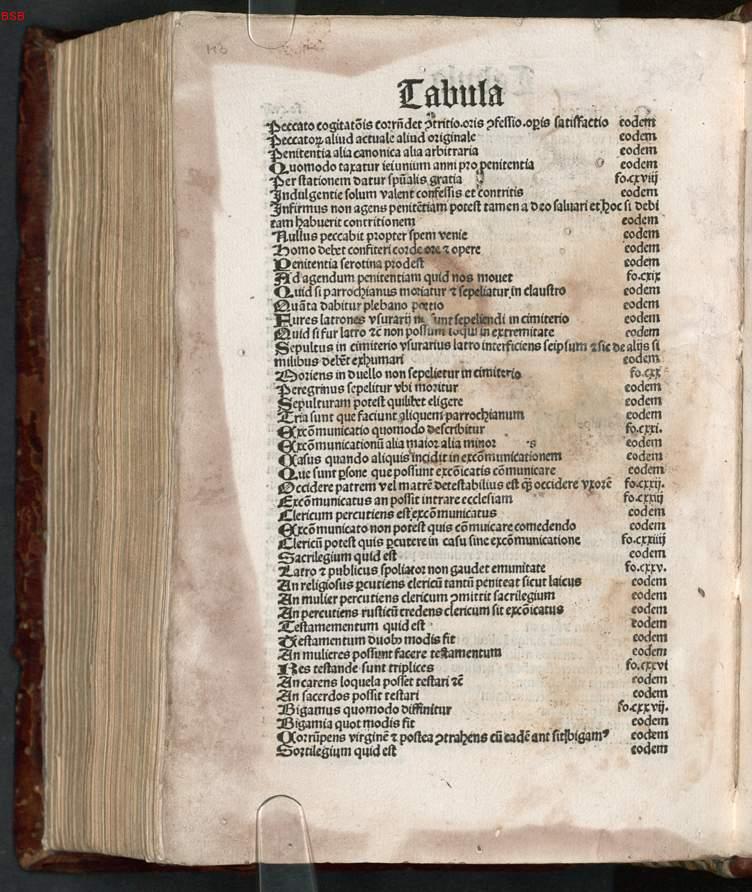 BSB
Tabula
Peccato cogitatōis corrūdet ꝯtritio.oris ꝯfessio.oꝑis satisfactio eodem
Peccatoꝝ aliud actuale aliud originale eodem
Penitentia alia canonica alia arbitraria eodem
Quomodo taxatur ieiunium anni pro penitentia eodem
Per stationem datur spūalis gratia fo.cxviij
Indulgentie solum valent confessis et contritis eodem
Infirmus non agens penitētiam potest tamen a deo saluari et hoc si debi
tam habuerit contritionem eodem
Nullus peccabit propter spem venie eodem
Homo debet confiteri corde ore ⁊ opere eodem
Penitentia serotina prodest eodem
Ad agendum penitentiam quid nos mouet fo.cxix
Quid si parrochianus moriatur ⁊ sepeliatur in claustro eodem
Quāta dabitur plebano portio eodem
Fures latrones vsurarij unt sepeliendi in cimiterio eodem
Quid si fur latro ⁊c̄ non possunt loqui in extremitate eodem
Sepultus in cimiterio vsurarius latro interficiens seipsum ⁊ sic de alijs si
milibus debēt exhumari eodem
Moriens in duello non sepelietur in cimiterio fo.cxx
Peregrinus sepelitur vbi moritur eodem
Sepulturam potest quilibet eligere eodem
Tria sunt que faciunt aliquem parrochianum eodem
Excōmunicatio quomodo describitur fo.cxxi.
Excōmunicationū alia maior alia minor s eodem
Casus quando aliquis incidit in excōmunicationem eodem
Que sunt ꝑsone que possunt excōicatis cōmunicare eodem
Occidere patrem vel matrē detestabilius est qꝫ occidere vxorē fo.cxxij.
Excōmunicatus an possit intrare ecclesiam fo.cxxiij
Clericum percutiens est excōmunicatus eodem
Excōmunicato non potest quis cōmuicare comedendo eodem
Clericū potest quis ꝑcutere in casu sine excōmunicatione fo.cxxiiij
Sacrilegium quid est eodem
Latro ⁊ publicus spoliator non gaudet emunitate fo.cxxv.
An religiosus ꝑcutiens clericū tantū peniteat sicut laicus eodem
An mulier percutiens clericum ꝯmittit sacrilegium eodem
An percutiens rusticū credens clericum sit excōicatus eodem
Testamementum quid est eodem
Testamentum duobꝰ modis fit eodem
An mulieres possunt facere testamentum eodem
Res testande sunt triplices fo.cxxvi
An carens loquela posset testari ⁊c̄ eodem
An sacerdos possit testari eodem
Bigamus quomodo diffinitur fo.cxxvij.
Bigamia quot modis fit eodem
Corrūpens virginē ⁊ postea ꝯtrahens cū eadē ant sit bigamꝰ eodem
Sortilegium quid est eodem